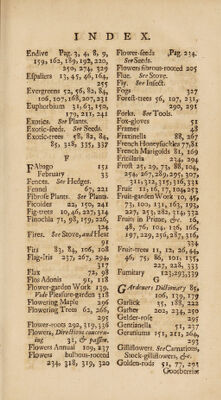 INDEX.
Endive Pag. 3, 4, 8, 9,
159, 162, 189, 192, 220,
250, 274, 329
Espaliers 13, 45, 46, 164,
255
Evergreens 52, 56, 82, 84,
106, 107, 168, 207, 231
Euphorbium 31, 63, 150,
179, 211, 241
Exotics. See Plants.
Exotic-seeds. See Seeds.
Exotic-trees 58, 82, 84,
85, 318, 335, 337
F
FAbago 151
February 33
Fences. See Hedges.
Fennel 67, 221
Fibrose Plants. See Plants.
Ficoides 82, 150, 241
Fig-trees 10, 46, 237, 314
Finochia 71, 98, 159, 225,
324
Fires. See Stove, and Heat
91
Firs 83, 84, 106, 108
Flag-Iris 237, 267, 294,
317
Flax 72, 98
Flos Adonis 91, 118
Flower-garden Work 139,
Vide Pleasure-garden 318
Flowering Maple 62
Flowering Trees 62, 266,
295
Flower-roots 292, 319, 336
Flowers, Directions concern-
ing 31, & passim.
Flowers Annual 109, 237
Flowers bulbous-rooted
234, 318, 319, 320
Flower-seeds Pag. 234.
See Seeds.
Flowers fibrous-rooted 205
Flue. See Stove.
Fly. See Insect.
Fogs 327
Forest-trees 56, 107, 231,
290, 291
Forks. See Tools.
Fox-gloves 51
Frames 48
Fraxinella 88, 267
French Honeysuckles 77, 81
French Marigolds 81, 169
Fritillaria 234, 294
Frost 25, 29, 73, 88, 104,
254, 267, 289, 295, 307,
311, 312, 315, 316, 331
Fruit 11, 16, 17, 104, 253
Fruit-garden Work 10, 45,
73, 100, 131, 163, 193,
227, 253, 282, 314, 332
Fruits in Prime, &c. 16,
48, 76, 104, 136, 166,
197, 229, 256, 287, 316,
334
Fruit-trees 11, 12, 26, 44,
46, 75, 86, 101, 135,
227, 228, 333
Fumitary 123, 293, 339
G
GArdeners Dictionary 85,
106, 139, 179
Garlick 155, 188, 222
Garher 202, 234, 250
Gelder-rose 295
Gentianella 51, 237
Geraniums 151, 211, 264,
293
Gilliflowers. See Carnations,
Stock-gilliflowers, &c.
Golden-rods 51, 77, 293
Gooseberries